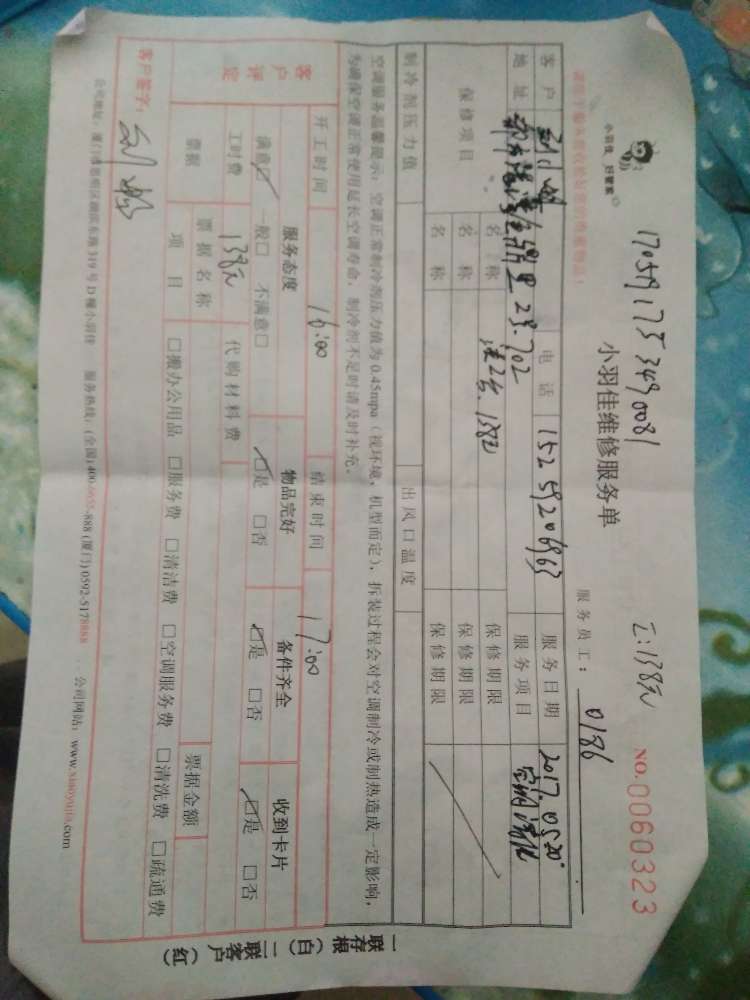 17059175349081
工:138元
小羽佳 好管家
小羽佳维修服务单
NO.0060323
服务员工: 0186
客户 电话 15259206963 服务日期 2017.0520
地址 23.702 服务项目 空调清洗
保修项目 名称 138元 保修期限
名称 保修期限
名称 保修期限
制冷剂压力值 出风口温度
空调服务温馨提示:空调正常制冷剂压力值为0.45mpa(视环境、机型而定),拆装过程会对空调制冷或制热造成一定影响,
为确保空调正常使用延长空调寿命,制冷剂不足时请及时补充。
开工时间 16:00 结束时间 17:00
客户评定 服务态度 物品完好 备件齐全 收到卡片
满意☑ 一般□ 不满意□ ☑是 □否 ☑是 □否 ☑是 □否
工时费 138元 代购材料费
票据 票据名称 票据金额
项目 □搬办公用品 □服务费 □清洁费 □空调服务费 □清洗费 □疏通费
客户签字:
公司地址:厦门市思明区 319号D幢小羽佳 服务热线:(全国)400- -888 (厦门)0592-5178888 公司网站:www.xiaoyujia.com
一联存根(白) 二联客户(红)